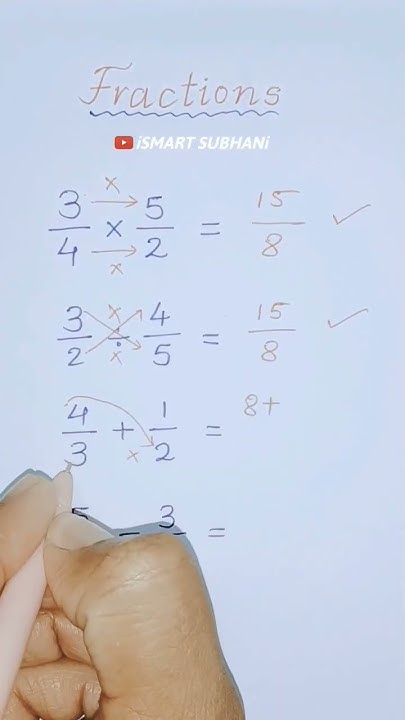 Fractions
iSMART SUBHANi
3/4 × 5/2 = 15/8 ✓
3/2 ÷ 4/5 = 15/8 ✓
4/3 + 1/2 = 8+
- 3 =